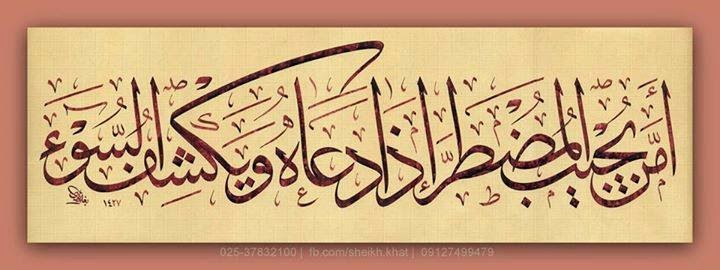 أمَّن يُجيبُ المُضطَرَّ إذا دَعاهُ وَيَكشِفُ السُّوءَ
١٤٣٧
025-37832100 | fb.com/sheikh.khat | 09127499479